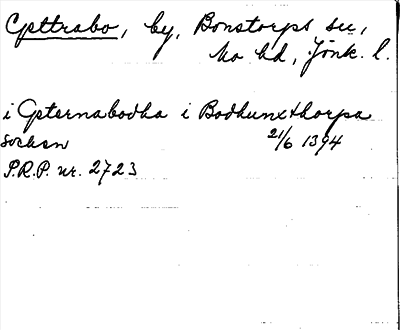 Opttrabo, by, Bonstorps sn,
Mo hd, Jönk. l.
i Opternabodha i Bodhunxthorpa
sochen 21/6 1394
P.R.P. nr. 2723